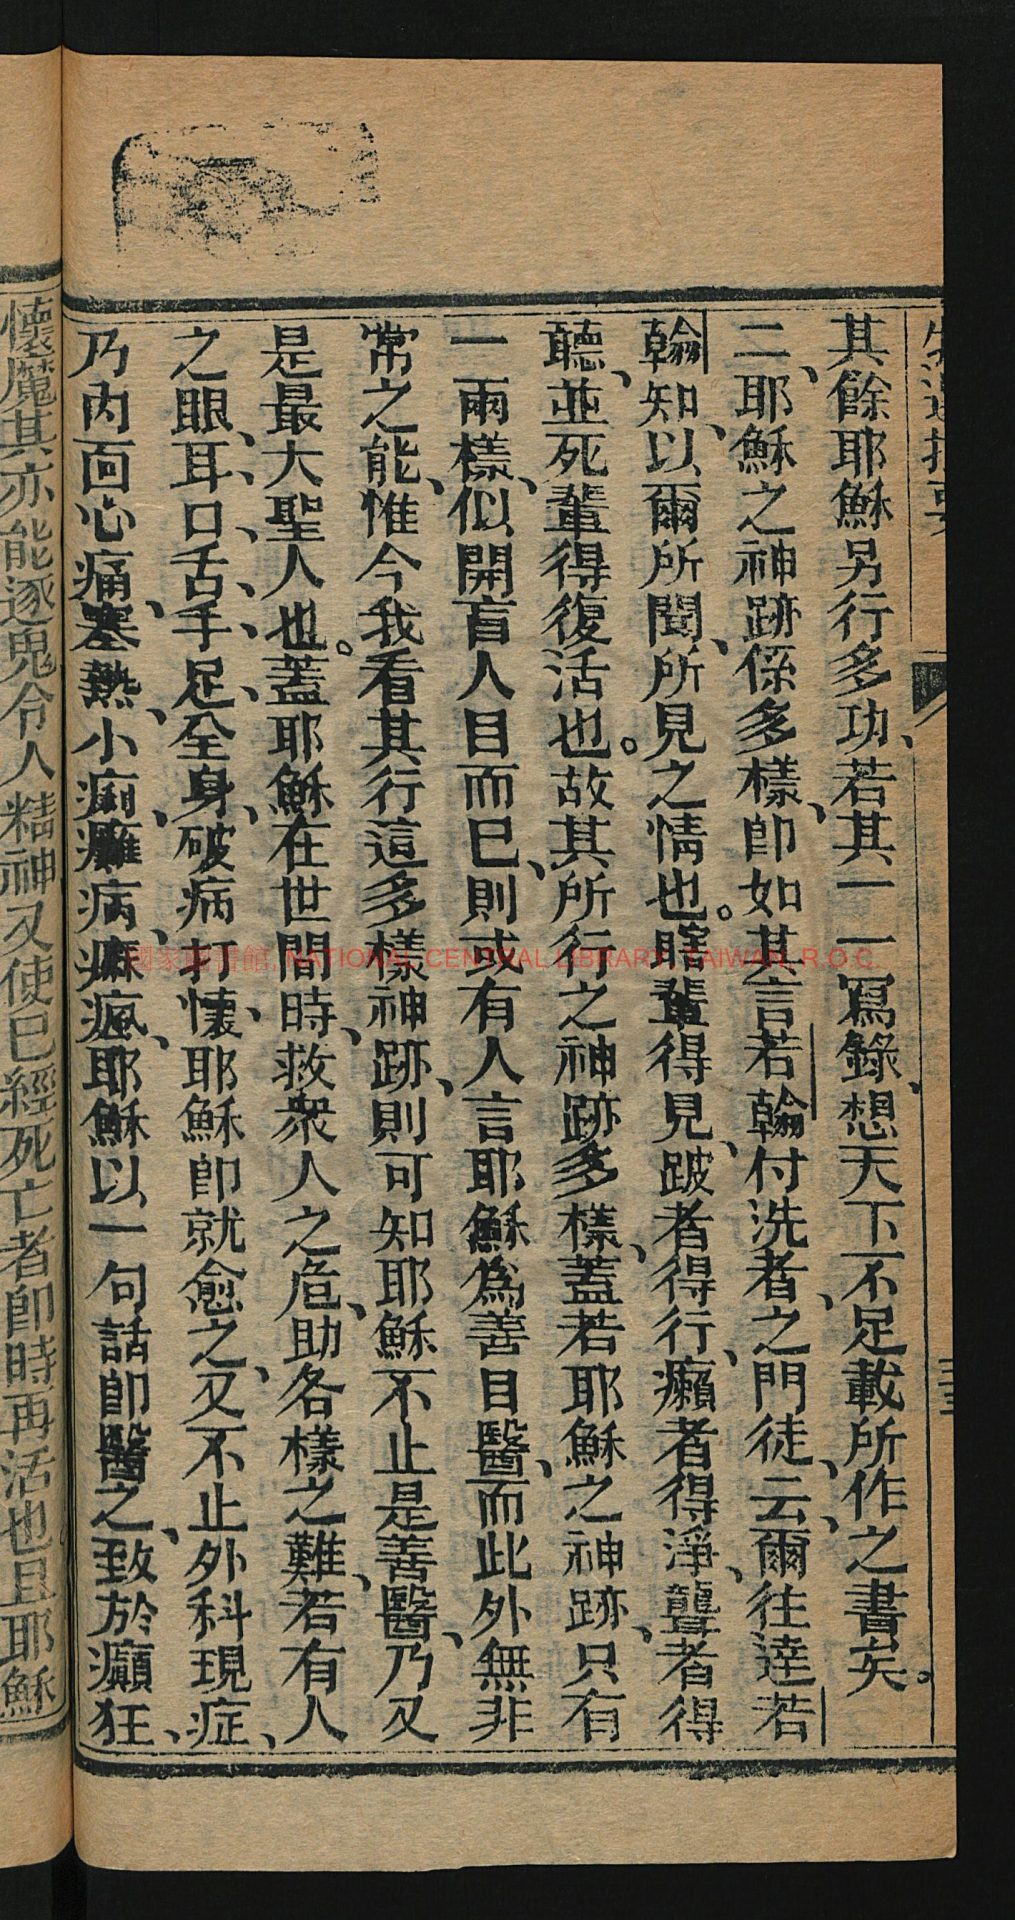 其餘耶穌另行多功、若其一一寫錄、想天下不足載所作之書矣。
二、耶穌之神跡係多樣、卽如其言若翰付洗者、之門徒、云、爾往達若
翰知、以爾所聞、所見之情也。瞎輩得見、跛者得行、癩者得淨、聾者得
聽、並死輩得復活也。故其所行之神跡多樣、蓋若耶穌之神跡、只有
一兩樣、似開盲人目而已、則或有人言耶穌爲善目醫、而此外無非
常之能、惟今我看其行這多樣神跡、則可知耶穌不止是善醫、乃又
是最大聖人也。蓋耶穌在世間時、救衆人之危、助各樣之難、若有人
之眼、耳、口、舌、手、足、全身、破病打懷、耶穌卽就愈之、又不止外科現症、
乃內面心痛、寒熱、小痢、癱病、麻瘋、耶穌以一句話卽醫之、致於癲狂、
懷魔其亦能逐鬼令人精神又使已經死亡者卽時再活也且耶穌
國家圖書館, NATIONAL CENTRAL LIBRARY, TAIWAN, R.O.C